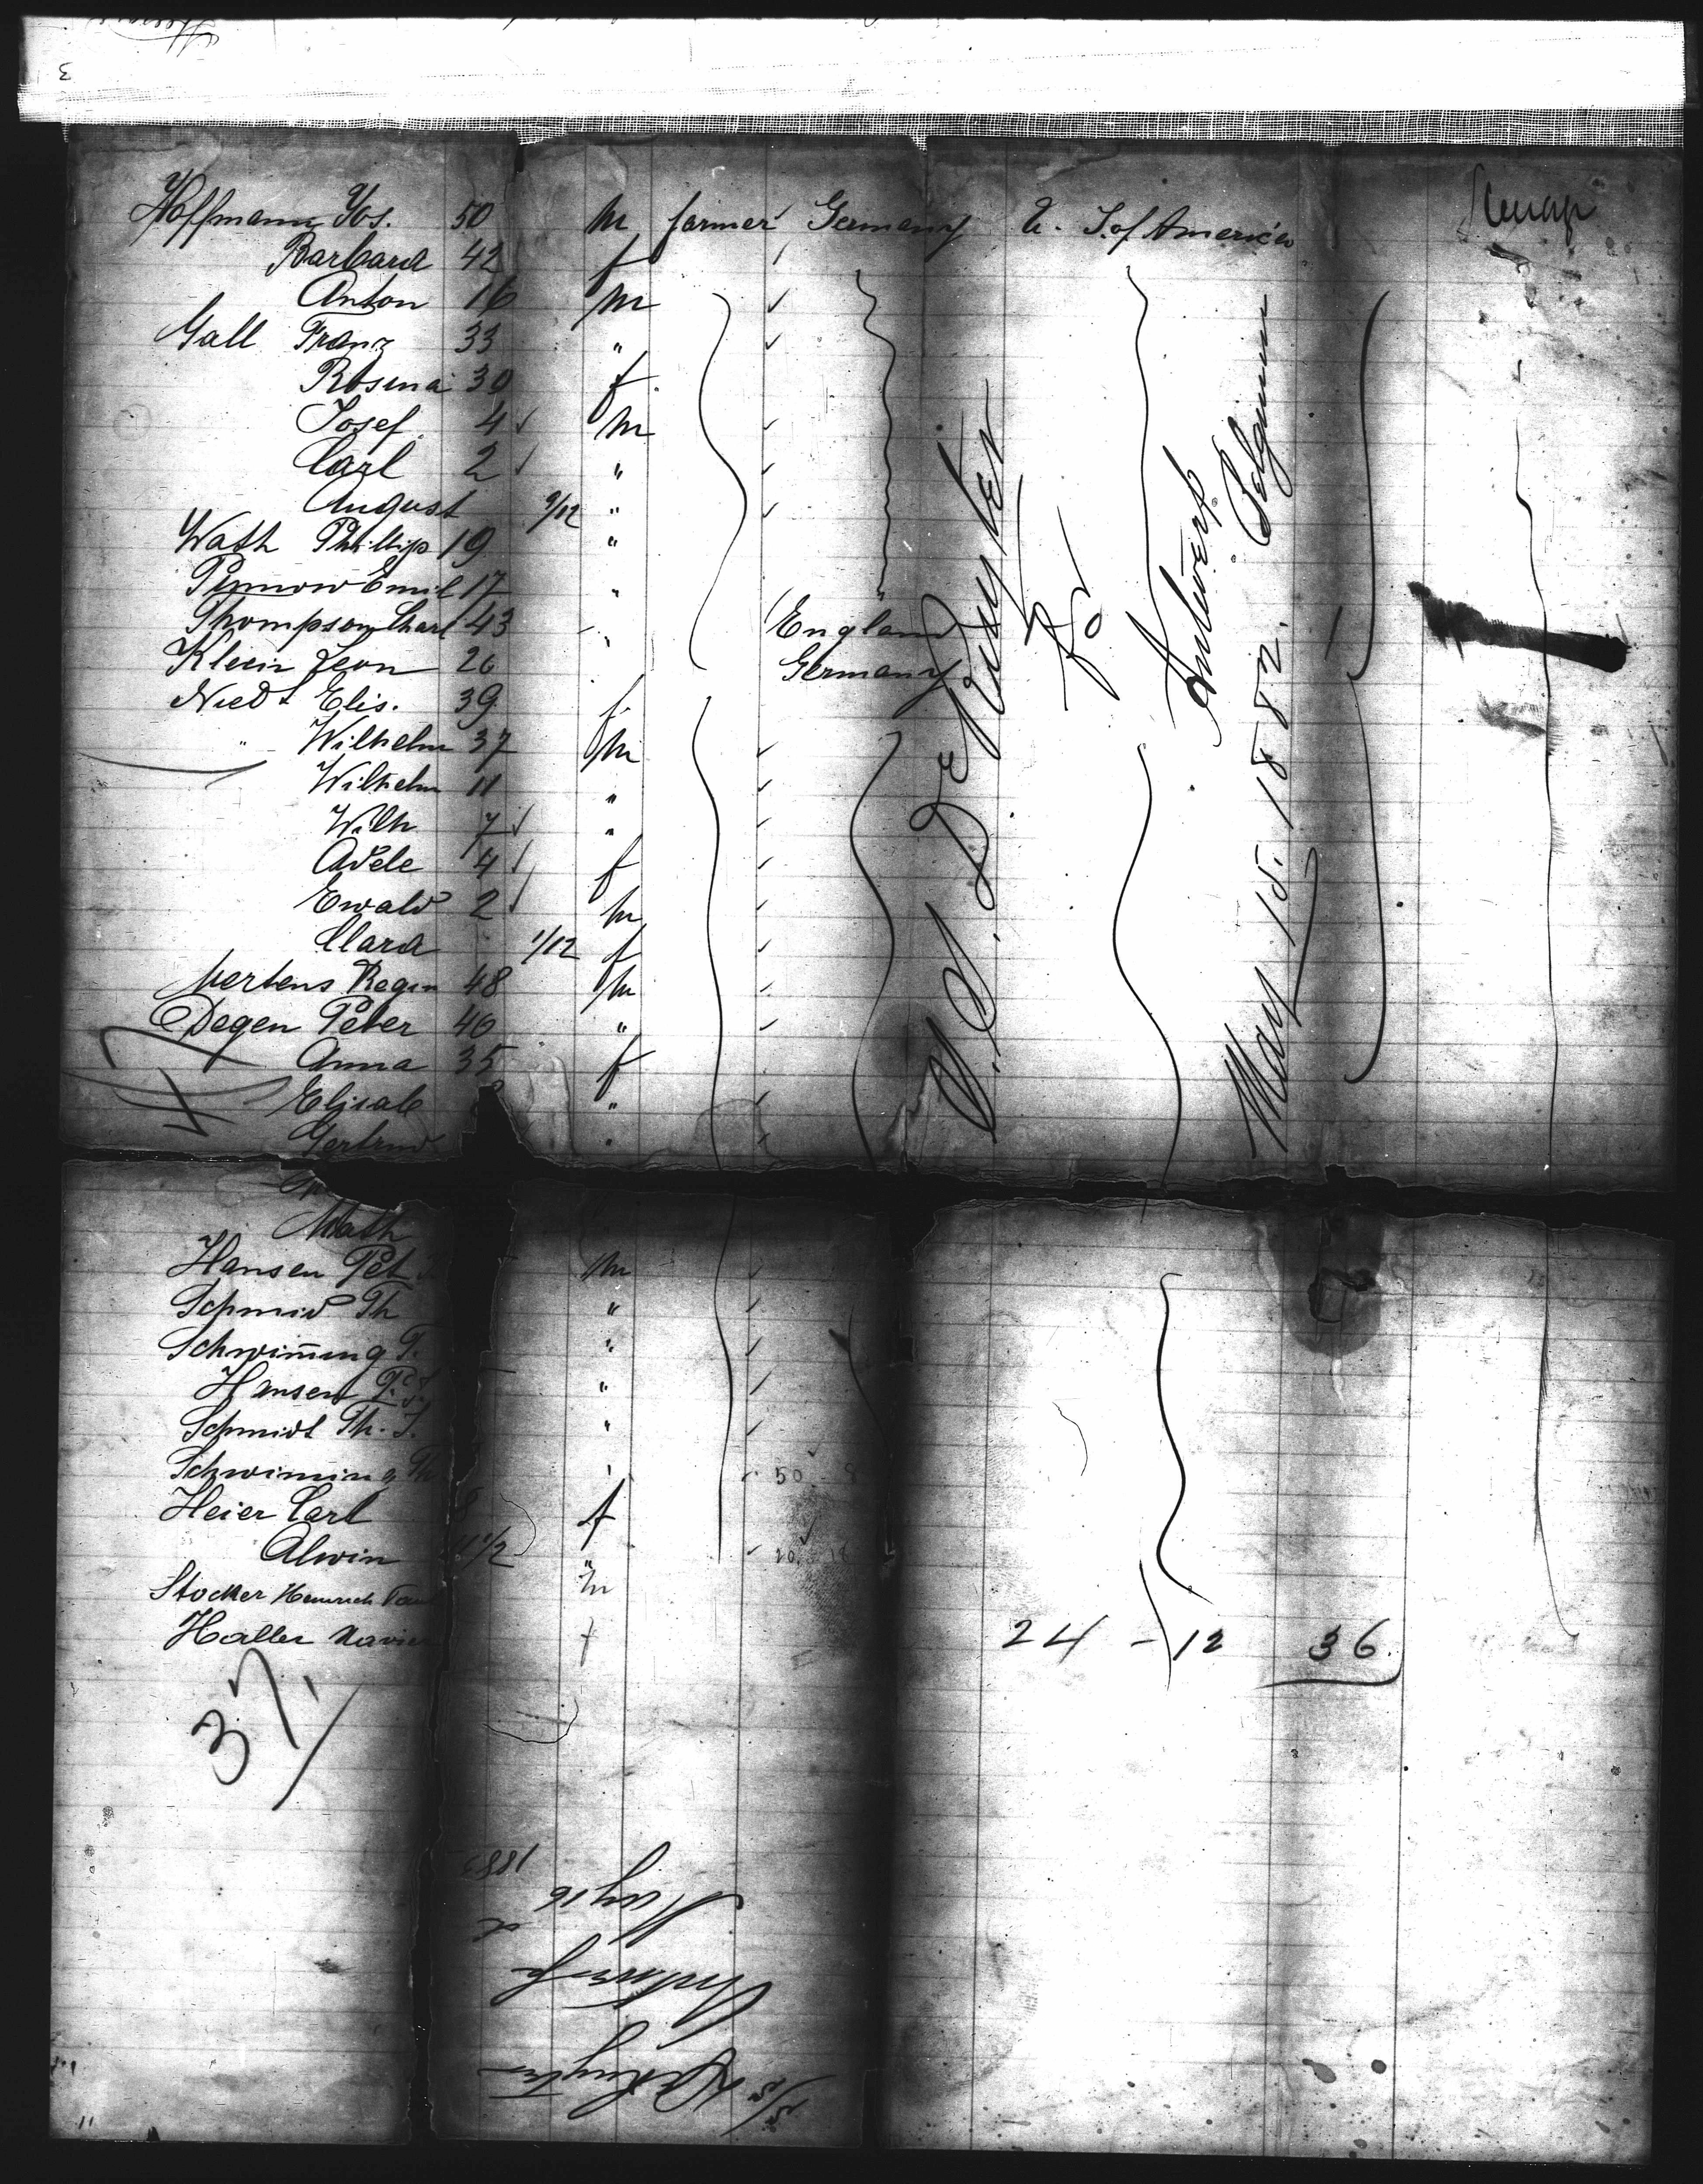 Hoffmann Jos. 50 m farmer Germany U. S. of America
Barbara 42 f
Anton 16 m
Gall Franz 33 "
Rosina 30 f
Josef 4 m
Carl 2 "
August 9/12 "
Wath Phillip 19 "
Emil 17 "
Thompson Charl 43 England
Klein Leon 26 Germany
Niedt Elis. 39 f
" Wilhelm 37 m
Wilhelm 11 "
Wilh 7 "
Adele 4 f
Ewald 2 m
Clara 1/12 f
Mertens Regin 48 m
Degen Peter 40 "
Anna 35 f
Elisab "
Gertrud
Math
Hansen Pet m
Schmid Th "
Schwiming T. "
Hansen P. "
Schmidt Th. J. "
Schwiming Th
Heier Carl f
Alwin 11 1/2 "
Stocker Heinrich m
Haller Xavier
24 - 12 36
37
S.S. De Ruyter
for
Antwerp
Belgium
May 15. 1882.
S/S De Ruyter
Antwerp
May 16